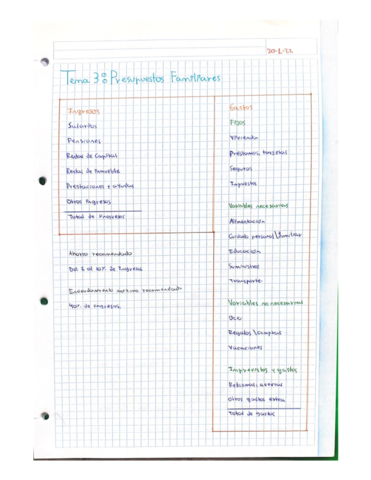 20-1-22
Tema 3: Presupuestos Familiares
Ingresos
Salarios
Pensiones
Rentas de Capital
Rentas de Inmueble
Prestaciones y ayudas
Otros Ingresos
Total de Ingresos
Ahorro recomendado
Del 5 al 10% de Ingresos
Endeudamiento máximo recomendado
40% de Ingresos
Gastos
Fijos
Vivienda
Préstamos, tarjetas
Seguros
Impuestos
Variables necesarios
Alimentación
Cuidado personal \ familiar
Educación
Suministros
Transporte
Variables no necesarios
Ocio
Regalos \ Compras
Vacaciones
Imprevistos y gastos
averías
Otros gastos extra
Total de gastos